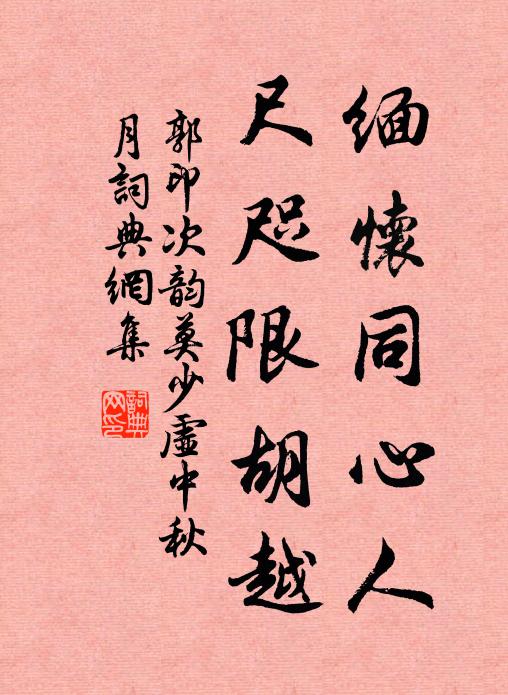 緬懷同心人
尺咫限胡越
郭印次韵莫少虛中秋
月詞典網集
詞典网印